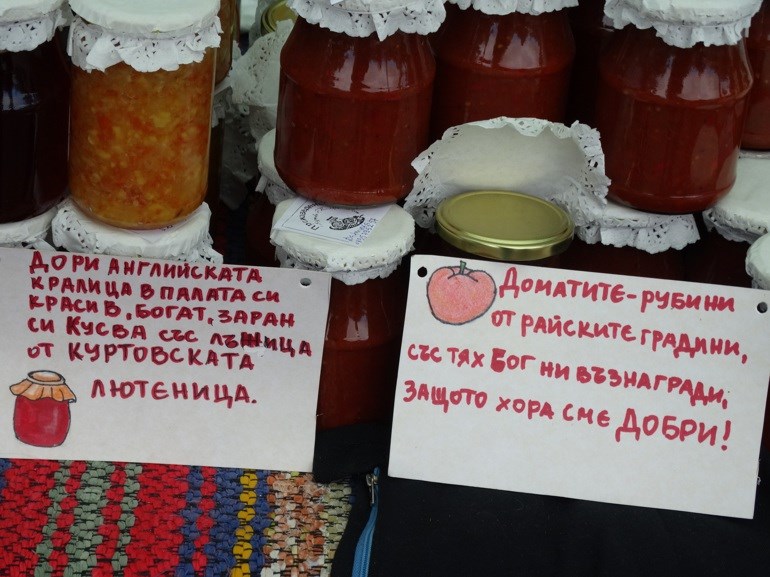 ДОРИ АНГЛИЙСКАТА
КРАЛИЦА В ПАЛАТА СИ
КРАСИВ, БОГАТ, ЗАРАН
СИ КУСВА СЪС ЛЪЖИЦА
ОТ КУРТОВСКАТА
ЛЮТЕНИЦА.
ДОМАТИТЕ-РУБИНИ
ОТ РАЙСКИТЕ ГРАДИНИ,
СЪС ТЯХ БОГ НИ ВЪЗНАГРАДИ,
ЗАЩОТО ХОРА СМЕ ДОБРИ!